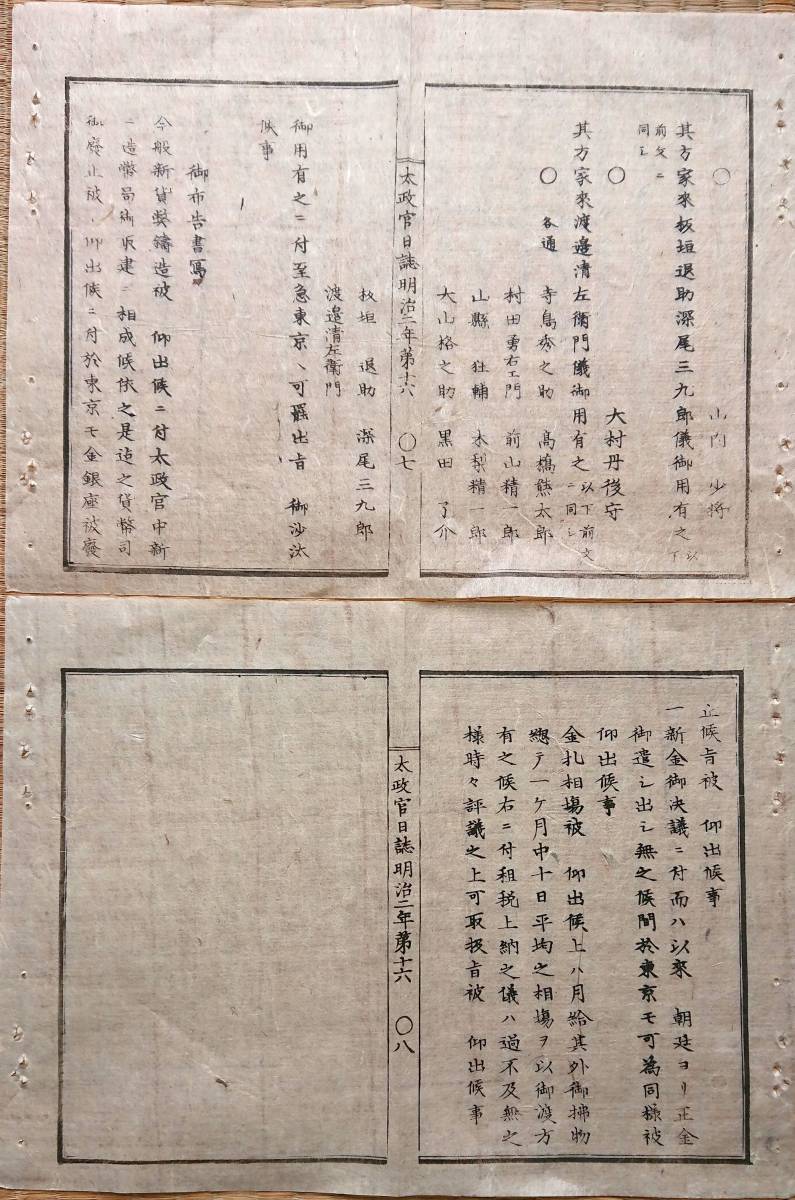 ○
山内少将
其方家来板垣退助深尾三九郎儀御用有之以下
前文ニ
同シ
○
大村丹後守
其方家来渡邉清左衛門儀御用有之以下前文ニ同シ
○ 各通
寺島秀之助 髙橋熊太郎
村田勇右エ門 前山精一郎
山縣狂輔 木梨精一郎
大山格之助 黒田了介
太政官日誌明治二年第十六 〇七
板垣退助 深尾三九郎
渡邉清左衛門
御用有之ニ付至急東京ヘ可罷出旨 御沙汰
候事
御布告書寫
今般新貨幣鋳造被 仰出候ニ付太政官中新
ニ造幣局御取建ニ相成候依之是迠之貨幣司
御廢止被 仰出候ニ付於東京モ金銀座被廢
止候旨被 仰出候事
一新金御决議ニ付而ハ以来 朝廷ヨリ正金
御遣シ出シ無之候間於東京モ可為同様被
仰出候事
金札相塲被 仰出候上ハ月給其外御拂物
總テ一ケ月中十日平均之相塲ヲ以御渡方
有之候右ニ付租税上納之儀ハ過不及無之
様時々評議之上可取扱旨被 仰出候事
太政官日誌明治二年第十六 〇八